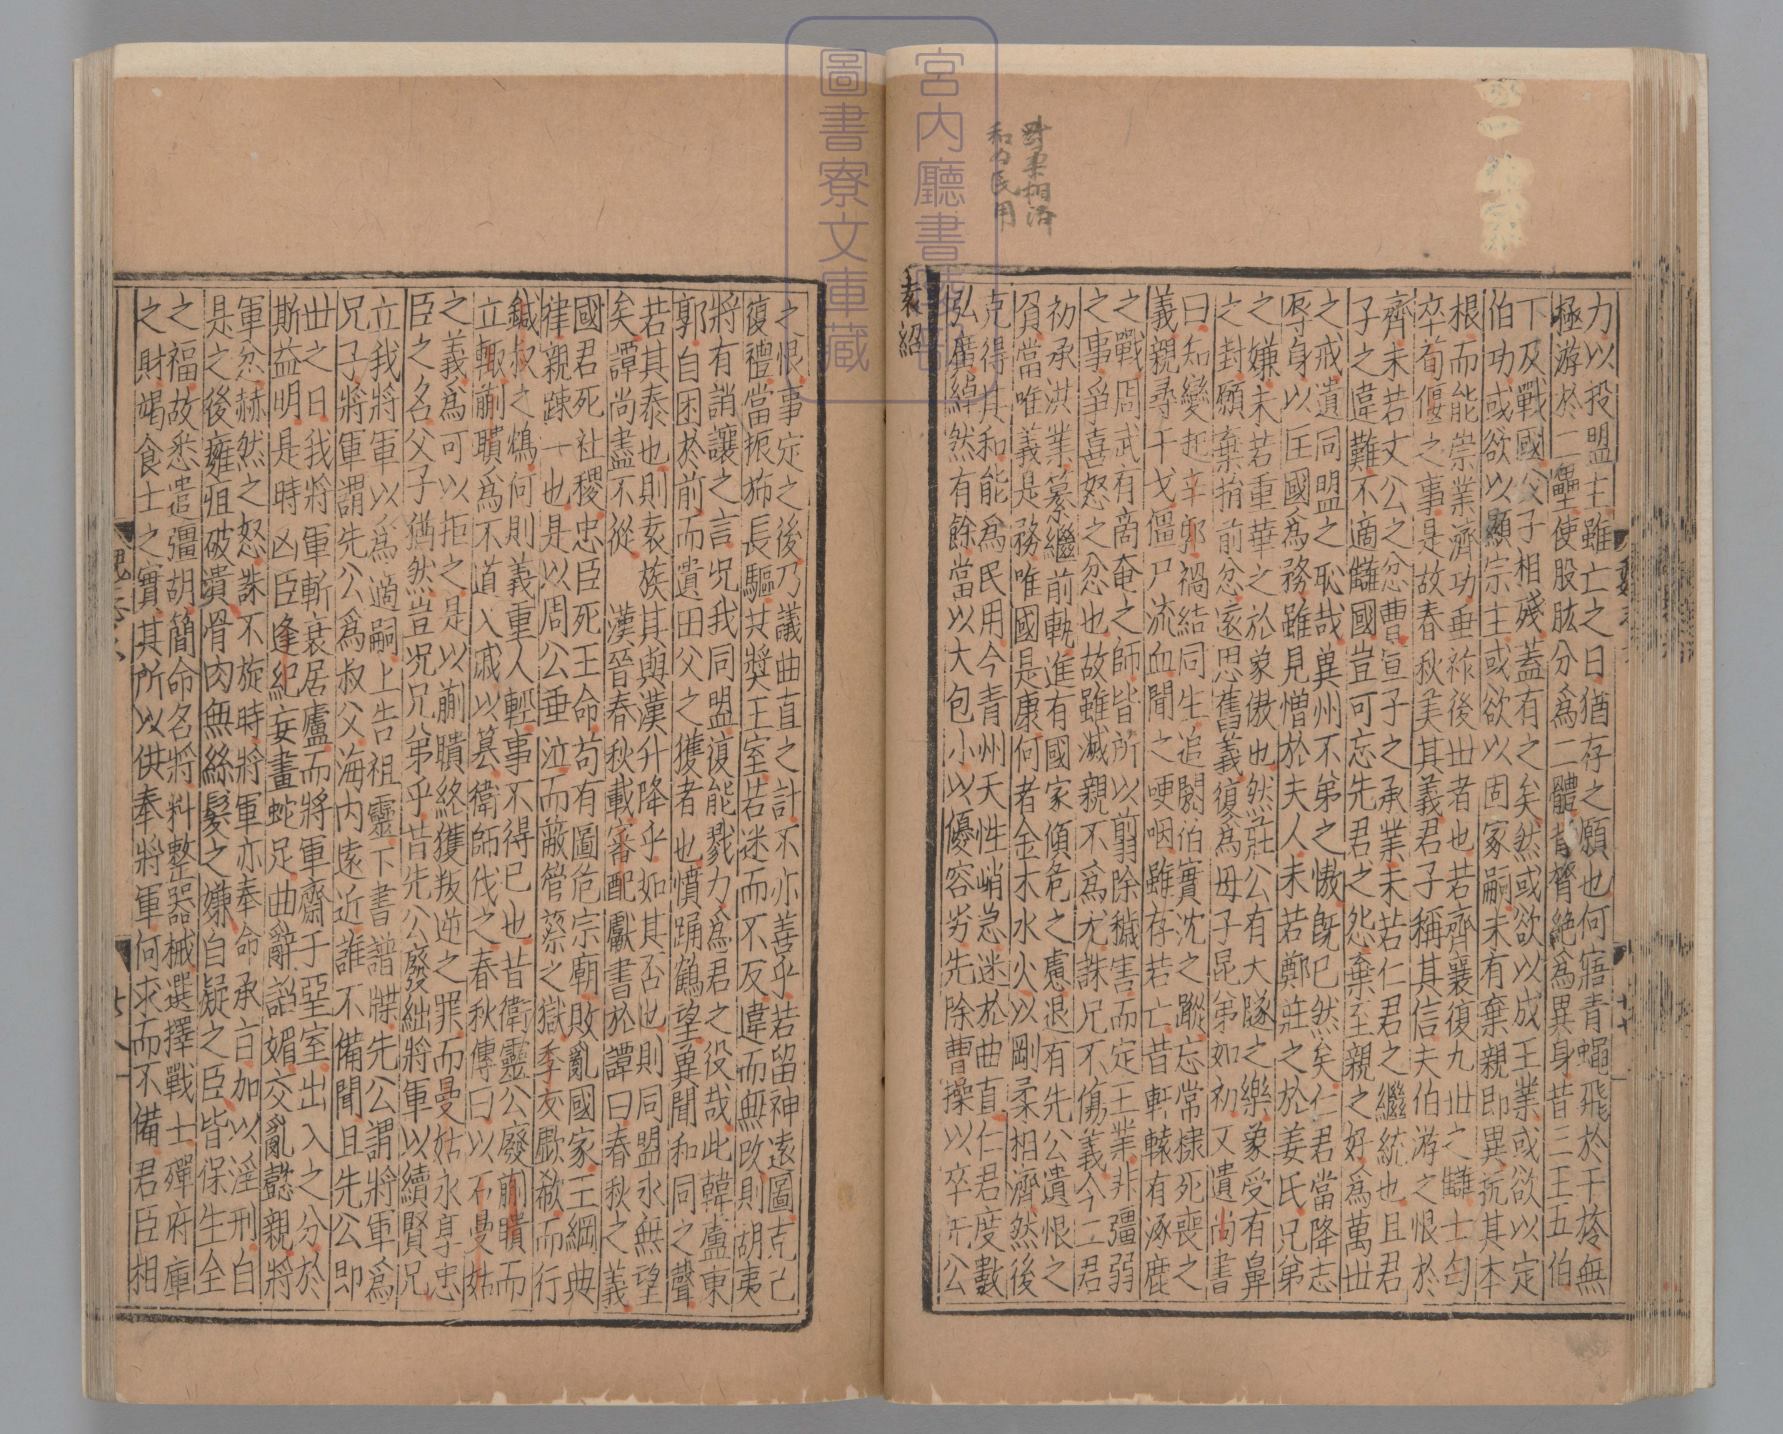 力以投盟主雖亡之日猶存之願也何寤青蠅飛於干旍無
極游於二壘使股肱分爲二體背膂絶爲異身昔三王五伯
下及戰國父子相殘蓋有之矣然或欲以成王業或欲以定
伯功或欲以顯宗主或欲以固家嗣未有棄親即異扤其本
根而能崇業濟功垂祚後世者也若齊襄復九世之讎士匄
卒荀偃之事是故春秋美其義君子稱其信夫伯游之恨於
齊未若文公之忿曹宣子之承業未若仁君之繼統也且君
子之違難不適讎國豈可忘先君之怨棄至親之好爲萬世
之戒遺同盟之恥哉兾州不弟之慠旣已然矣仁君當降志
辱身以匡國爲務雖見憎於夫人未若鄭莊之於姜氏兄弟
之嫌未若重華之於象傲也然莊公有大隧之樂象受有鼻
之封願棄捐前忿遠思舊義復爲母子昆弟如初又遺尚書
曰知變起辛郭禍結同生追閼伯實沈之蹤忘常棣死喪之
義親尋干戈僵尸流血聞之哽咽雖存若亡昔軒轅有涿鹿
之戰周武有商奄之師皆所以翦除穢害而定王業非彊弱
之事爭喜怒之忿也故雖滅親不爲尤誅兄不傷義今二君
初承洪業纂繼前軌進有國家傾危之慮退有先公遺恨之
負當唯義是務唯國是康何者金木水火以剛柔相濟然後
克得其和能爲民用今青州天性峭急迷於曲直仁君度數
弘廣綽然有餘當以大包小以優容劣先除曹操以卒先公
袁紹
剛柔相濟
和爲民用
之恨事定之後乃議曲直之計不亦善乎若留神遠圖克己
復禮當振斾長驅共奬王室若迷而不反違而無改則胡夷
將有誚讓之言况我同盟復能戮力爲君之役哉此韓盧東
郭自困於前而遺田父之獲者也憤踊鶴望兾聞和同之聲
若其泰也則袁族其與漢升降乎如其否也則同盟永無望
矣譚尚盡不從　漢晉春秋載審配獻書於譚曰春秋之義
國君死社稷忠臣死王命苟有圖危宗廟敗亂國家王綱典
律親踈一也是以周公垂泣而蔽管蔡之獄季友歔欷而行
鍼叔之鴆何則義重人輕事不得已也昔衛靈公廢蒯聵而
立輒蒯聵爲不道入戚以篡衛師伐之春秋傳曰以石曼姑
之義爲可以拒之是以蒯聵終獲叛逆之罪而曼姑永享忠
臣之名父子猶然豈况兄弟乎昔先公廢絀將軍以續賢兄
立我將軍以爲適嗣上告祖靈下書譜牒先公謂將軍爲
兄子將軍謂先公爲叔父海内遠近誰不備聞且先公即
世之日我將軍斬衰居廬而將軍齋于堊室出入之分於
斯益明是時凶臣逢紀妄畫蛇足曲辭諂媚交亂懿親將
軍忿赫然之怒誅不旋時將軍亦奉命承旨加以淫刑自
是之後癰疽破潰骨肉無絲髮之嫌自疑之臣皆保生全
之福故悉遣彊胡簡命名將料整器械選擇戰士殫府庫
之財竭食土之實其所以供奉將軍何求而不備君臣相
宮内廳書陵部
圖書寮文庫藏